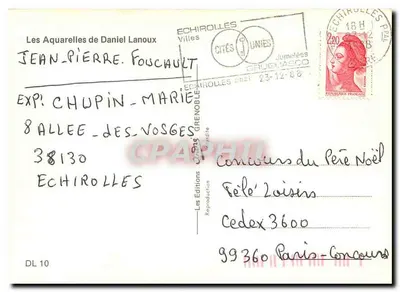 Les Aquarelles de Daniel Lanoux
JEAN-PIERRE. FOUCAULT
EXP: CHUPIN-MARIE
8 ALLEE-DES-VOSGES
38130
ECHIROLLES
DL 10
ECHIROLLES
Villes
CITÉS UNIES
Jumelées
GRUGLIASCO
23-12-88
ECHIROLLES PPAL
18H
2,20
Les Editions
GRENOBLE
Reproduction
Concours du Père Noël
Télé Loisirs
Cedex 3600
99360 Paris-Concours